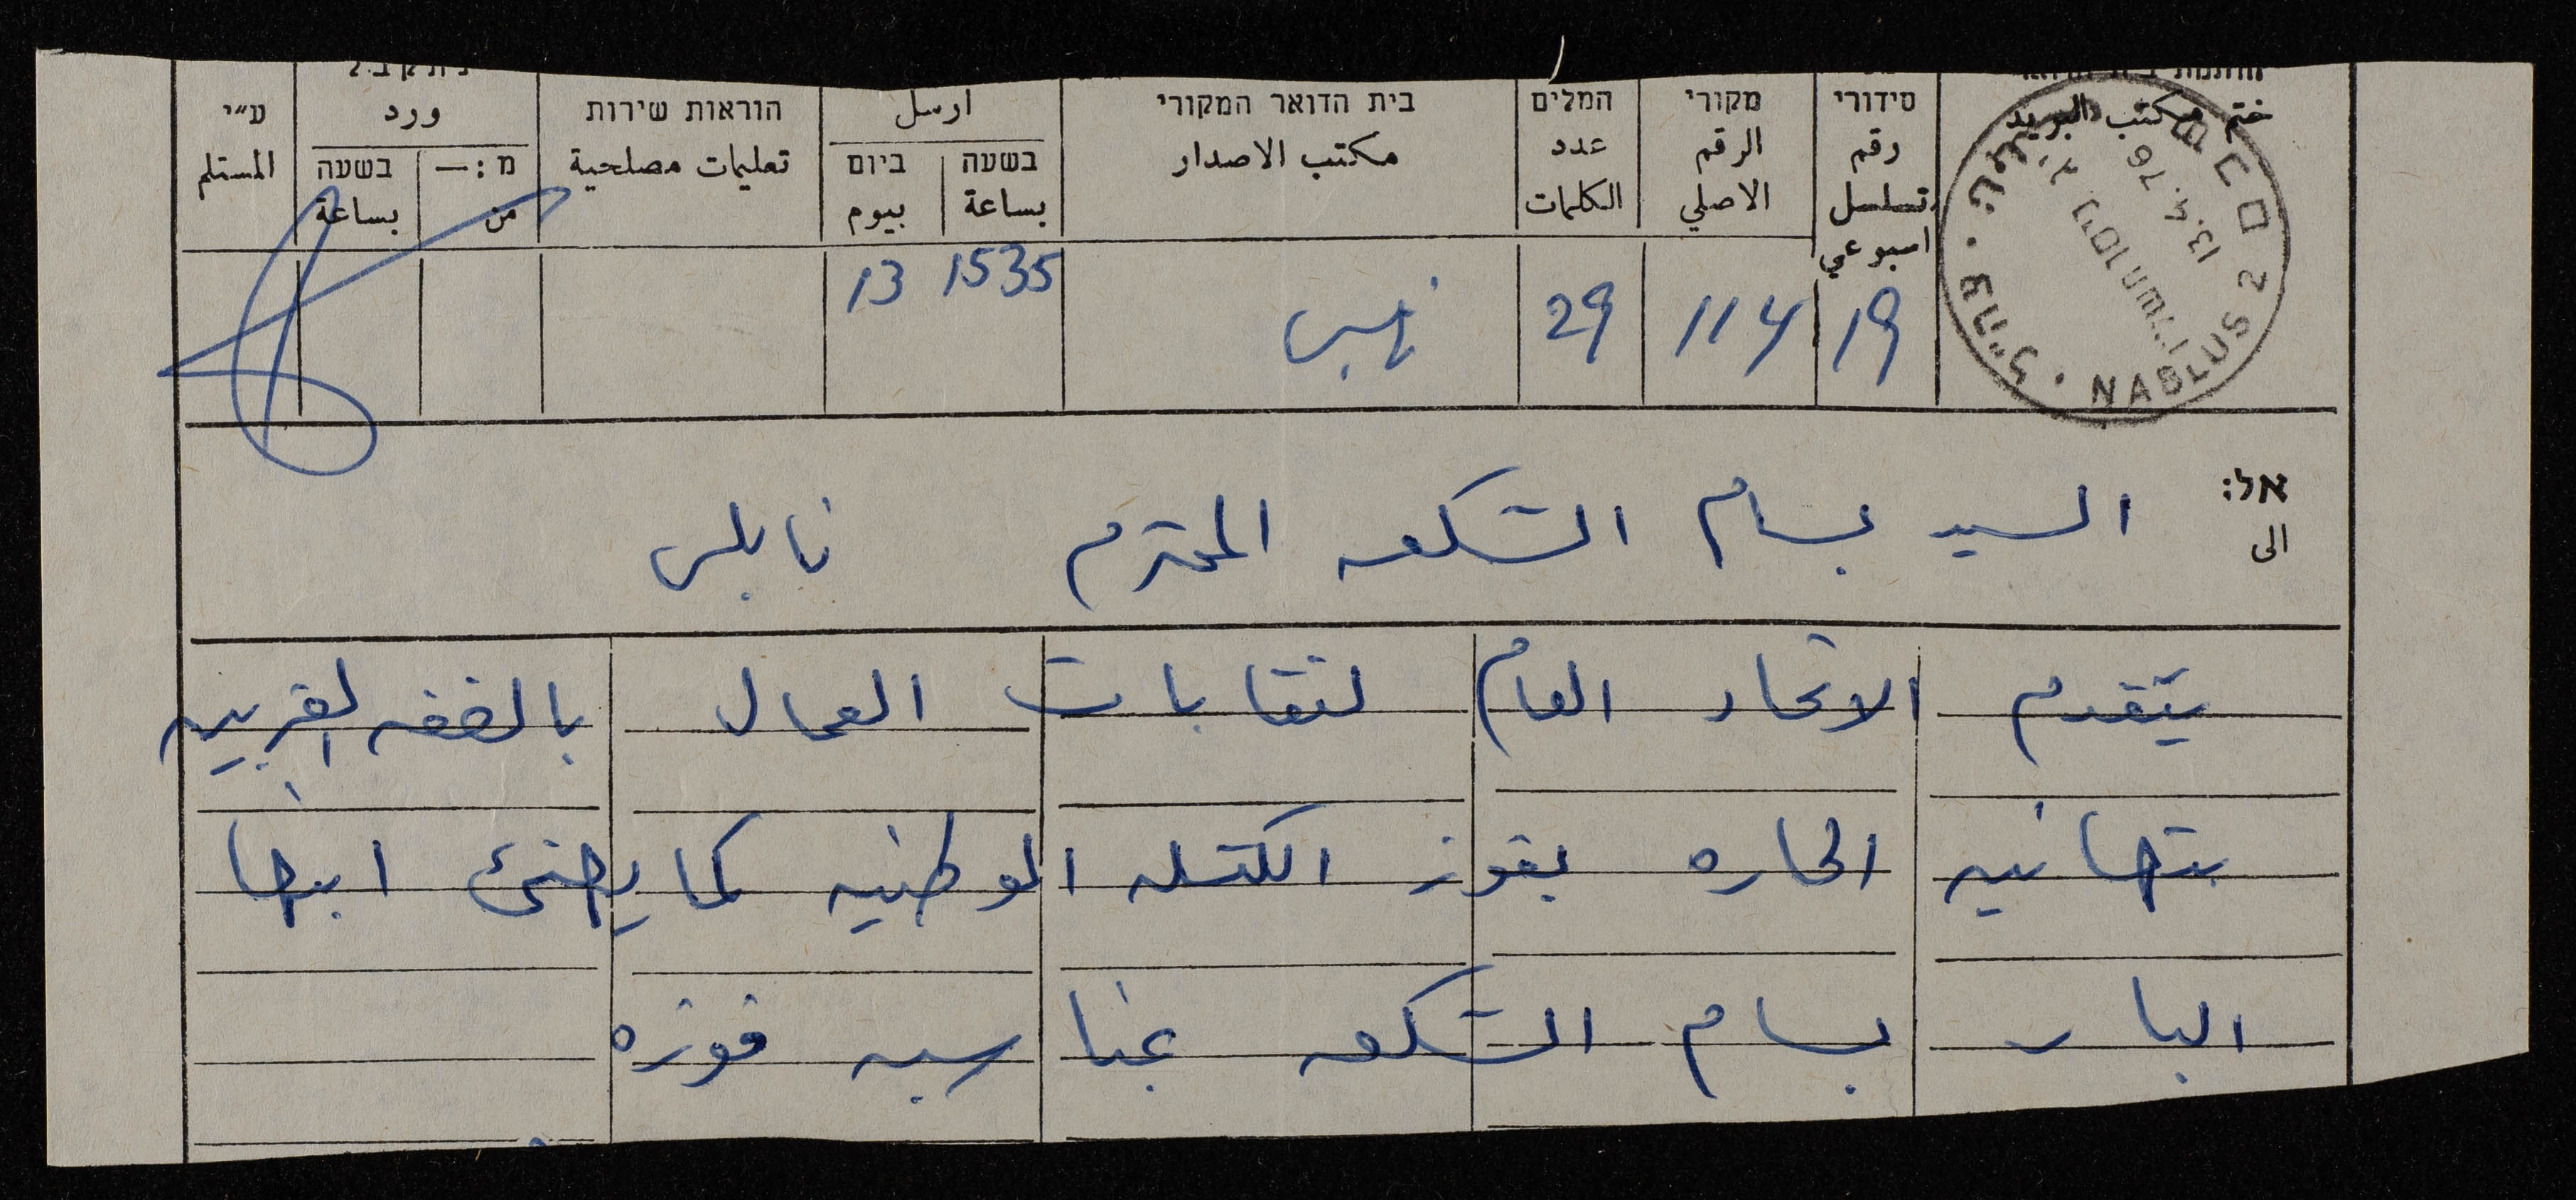 סידורי
رقم
تسلسل
اسبوعي
מקורי
الرقم
الاصلي
המלים
عدد
الكلمات
בית הדואר המקורי
مكتب الاصدار
ارسل
בשעה ביום
بساعة بيوم
הוראות שירות
تعليمات مصلحية
ورد
מ:— בשעה
من بساعة
ע"י
المستلم
ختم مكتب البريد
NABLUS 2
13.4.76
19 114 29 1535 13
אל:
الى
السيد بسام الشكعه المحترم نابلس
يتقدم الاتحاد العام لنقابات العمال بالضفه الغربيه
بتهانيه الحاره بفوز الكتله الوطنيه كما يهنئ ابنها
البار بسام الشكعه بمناسبه فوزه